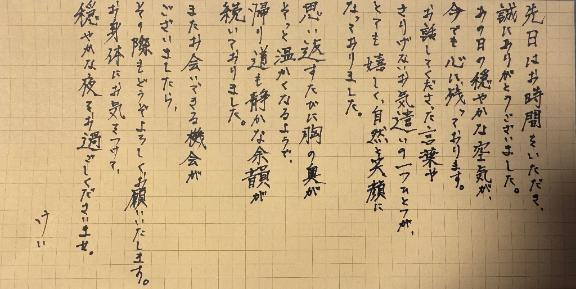 先日はお時間をいただき、
誠にありがとうございました。
あの日の穏やかな空気が、
今でも心に残っております。
お話してくださった言葉や
さりげないお気遣いの一つひとつが、
とても嬉しく、自然と笑顔に
なっておりました。
思い返すたびに胸の奥が
そっと温かくなるようで、
帰り道も静かな余韻が
続いておりました。
またお会いできる機会が
ございましたら、
その際もどうぞよろしくお願いいたします。
お身体にお気をつけて、
穏やかな夜をお過ごしくださいませ。
けい